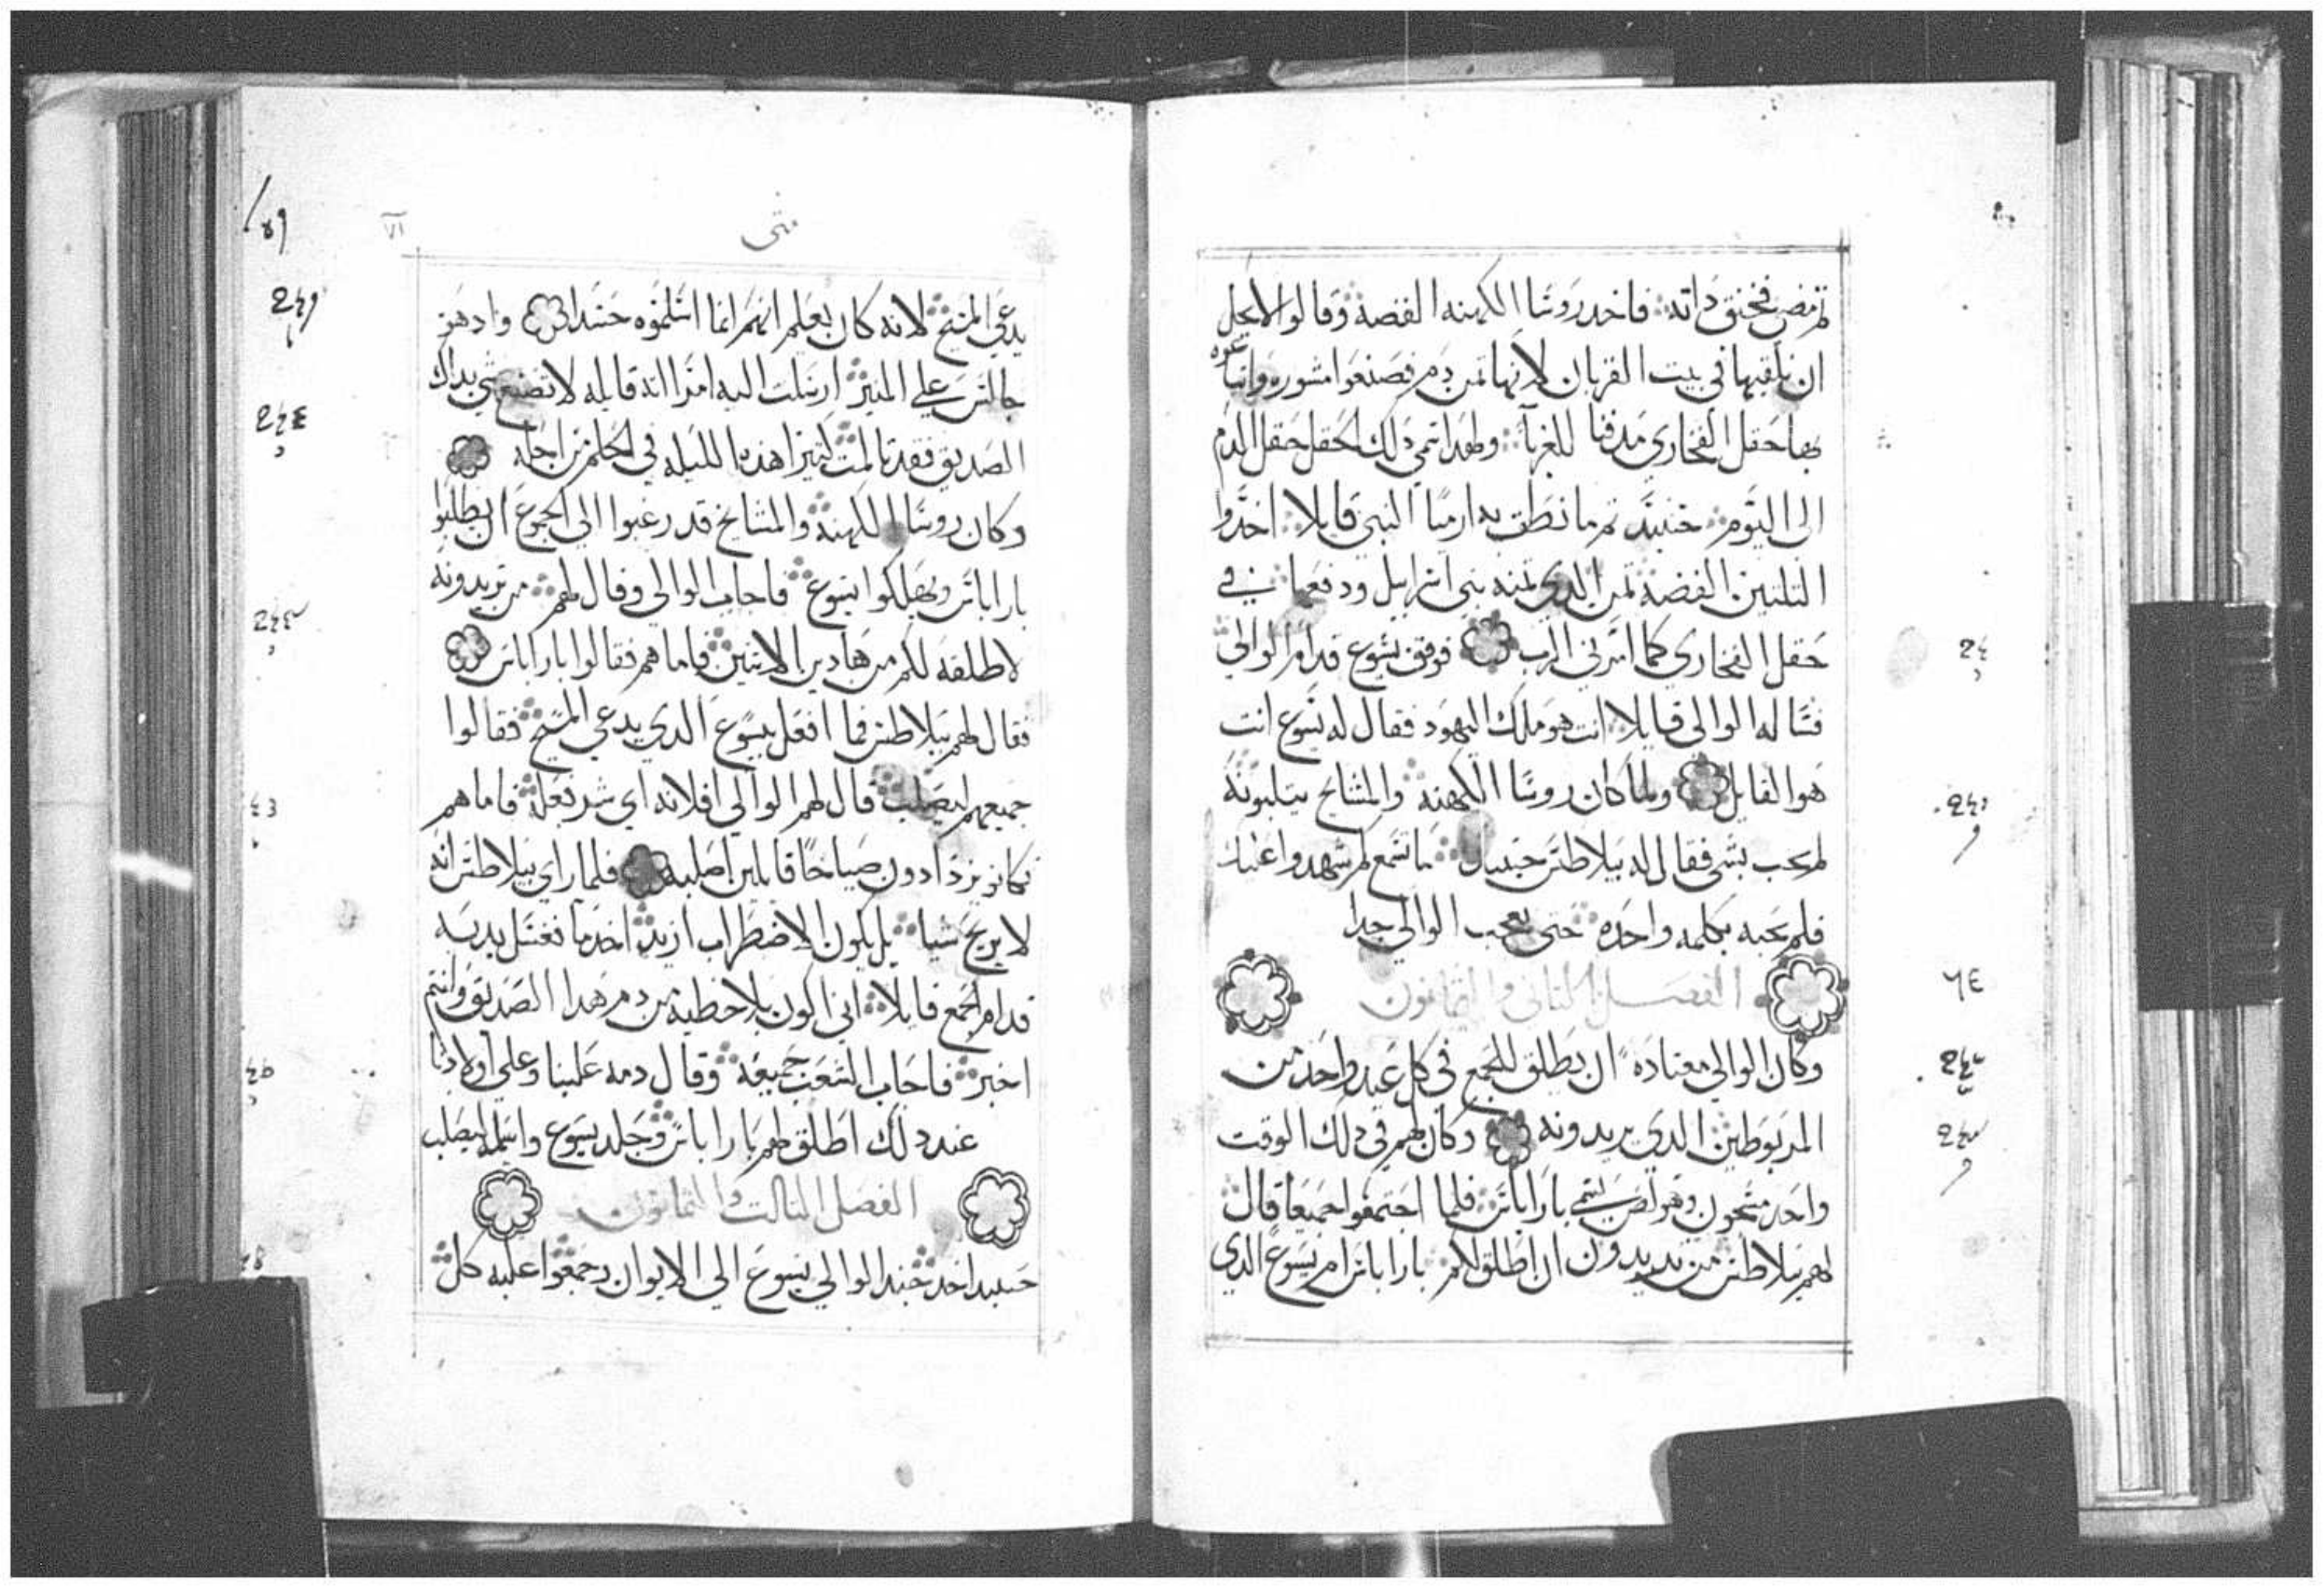 ثم مضى فخنق داته فاخد روسا الكهنه الفضة وقالوا لا يحل
ان نلقيها في بيت القربان لانها ثمن دم فصنعوا مشوره وابتاعوه
بها حقل الفخاري مدفنا للغربآ ولهدا سمي دلك الحقل حقل الدم
الى اليوم حنيد تم ما نطق به ارميا النبي قايلا اخدوا
الثلثين الفضه ثمن الدي ثمنه بني اسراييل ودفعها في
حقل الفخاري كما امرني الرب فوقف يسوع قدام الوالي
فساله الوالى قايلا انت هو ملك اليهود فقال له يسوع انت
هو القايل ولما كان روسا الكهنه والمشايخ يتلبونه
لم يجب بشي فقال له بيلاطس حينيد ما تسمع لم شهدوا عليك
فلم يجبه بكلمه واحده حتى تعجب الوالي جدا
الفصل الثاني والثمانون
وكان الوالي معتاده ان يطلق للجمع في كل عيد واحد من
المربوطين الدي يريدونه وكان لهم في دلك الوقت
واحد مسجون وهو لص يسمي باراباس فلما اجتمعوا جميعا قال
لهم بيلاطس من تريدون ان اطلق لكم باراباس ام يسوع الدي
متى
يدعي المسيح لانه كان يعلم انهم انما اسلموه حسدا واد هو
جالس علي المنبر ارسلت اليه امراته قايله لا تصنع شي بداك
الصديق فقد تالمت كثيرا هذه الليله في الحلم من اجله
وكان روسا الكهنة والمشايخ قد رغبوا الي الجموع ان يطلبوا
باراباس ويهلكوا يسوع فاجاب الوالي وقال لهم من تريدونه
لاطلقه لكم من هادين الاثنين فاما هم فقالوا باراباس
فقال لهم بيلاطس فما افعل بيسوع الدي يدعي المسيح فقالوا
جميعهم ليصلب قال لهم الوالي افلانه اي شر فعله فاما هم
فكانو يزدادون صياحا قايلين اصلبه فلما راي بيلاطس انه
لا يربح شيا بل يكون الاضطراب ازيد اخد ما فغسل يديه
قدام الجمع قايلا اني اكون بلا خطية من دم هدا الصديق وانتم
اخبر فاجاب الشعب جميعه وقال دمه علينا وعلي اولادنا
عند دلك اطلق لهم باراباس وجلد يسوع واسلمه ليصلب
الفصل الثالت والثمانون
حينيد اخد جند الوالي يسوع الي الايوان وجمعوا عليه كل